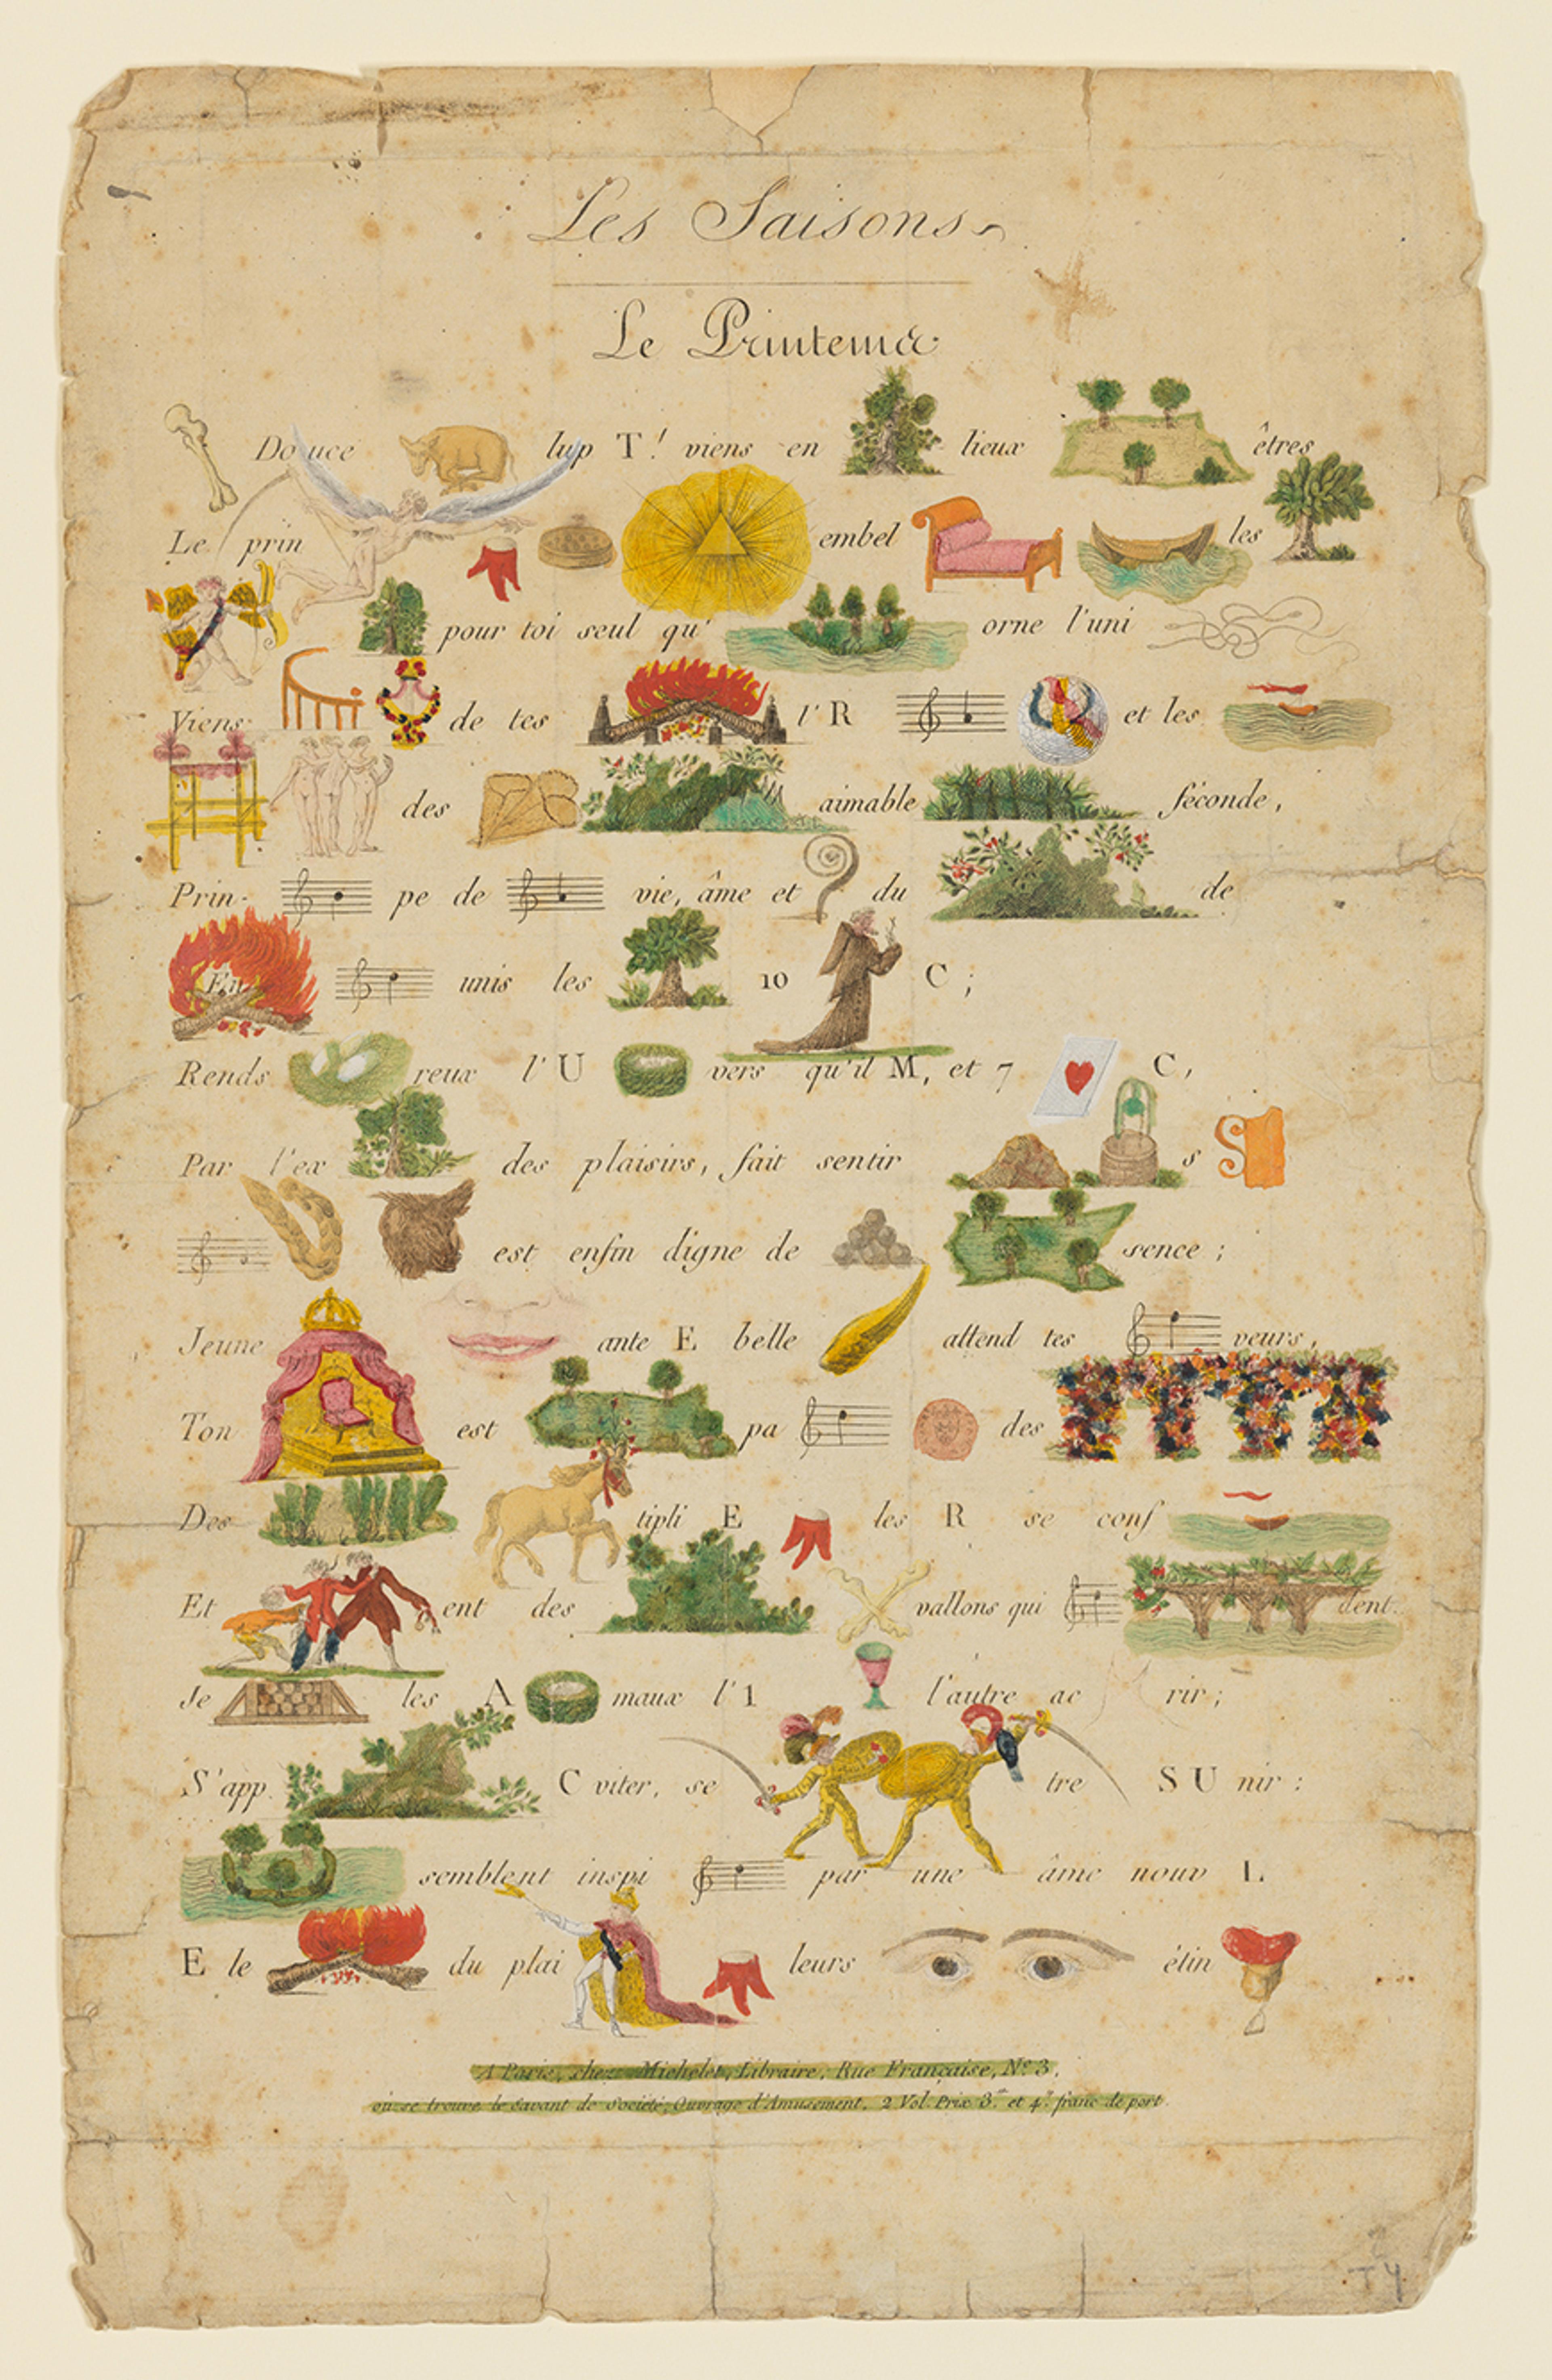 Les Saisons
Le Printems
Douce lup T! viens en lieux êtres
Le prin embel les
pour toi seul qu' orne l'uni
Viens de tes l' R et les
des aimable féconde,
Prin- pe de vie, âme et du de
En unis les 10 C;
Rends reux l' U vers qu'il M, et 7 C,
Par l'ex des plaisirs, fait sentir s S
est enfin digne de sence;
Jeune ante E belle attend tes veurs,
Ton est pa des
Des tipli E les R se conf
Et ent des vallons qui dent.
Je les A maux l' 1 l'autre ac rir;
S'app. C viter, se tre S U nir:
semblent inspi par une âme nouv L
E le du plai leurs étin
A Paris, chez Michelet, Libraire, Rue Française, No. 3,
où se trouve le Savant de Société, Ouvrage d'Amusement, 2 Vol. Prix 3. et 4. franc de port.
T4